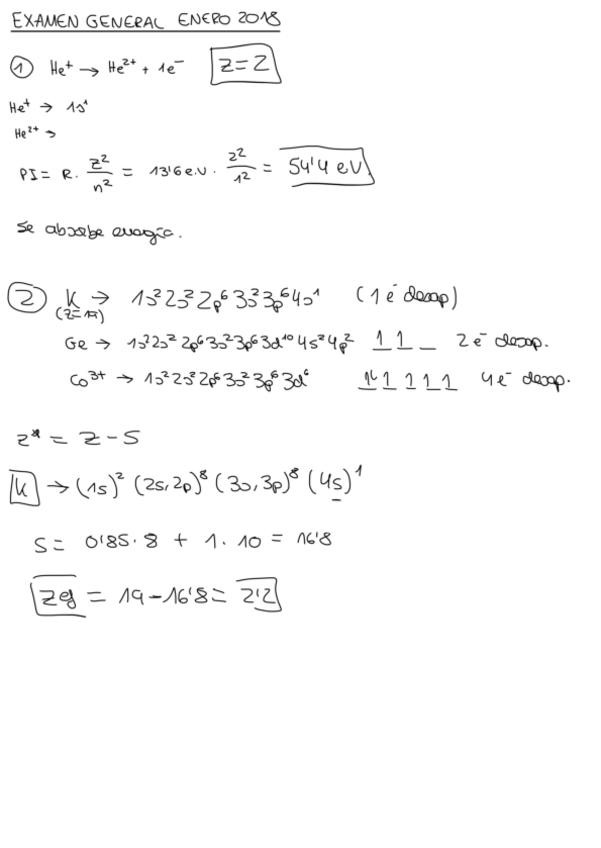 EXAMEN GENERAL ENERO 2018
① He⁺ → He²⁺ + 1e⁻ Z=2
He⁺ → 1s¹
He²⁺ →
PI = R · Z²/n² = 13'6 e.V · 2²/1² = 54'4 eV
Se absorbe energía.
② K → 1s²2s²2p⁶3s²3p⁶4s¹ (1 e⁻ desap)
(Z=19)
Ge → 1s²2s²2p⁶3s²3p⁶3d¹⁰4s²4p² 1 1 _ 2e⁻ desap.
Co³⁺ → 1s²2s²2p⁶3s²3p⁶3d⁶ 1L 1 1 1 1 4e⁻ desap.
Z* = Z - S
K → (1s)² (2s,2p)⁸ (3s,3p)⁸ (4s)¹
S = 0'85·8 + 1·10 = 16'8
Zef = 19-16'8 = 2'2